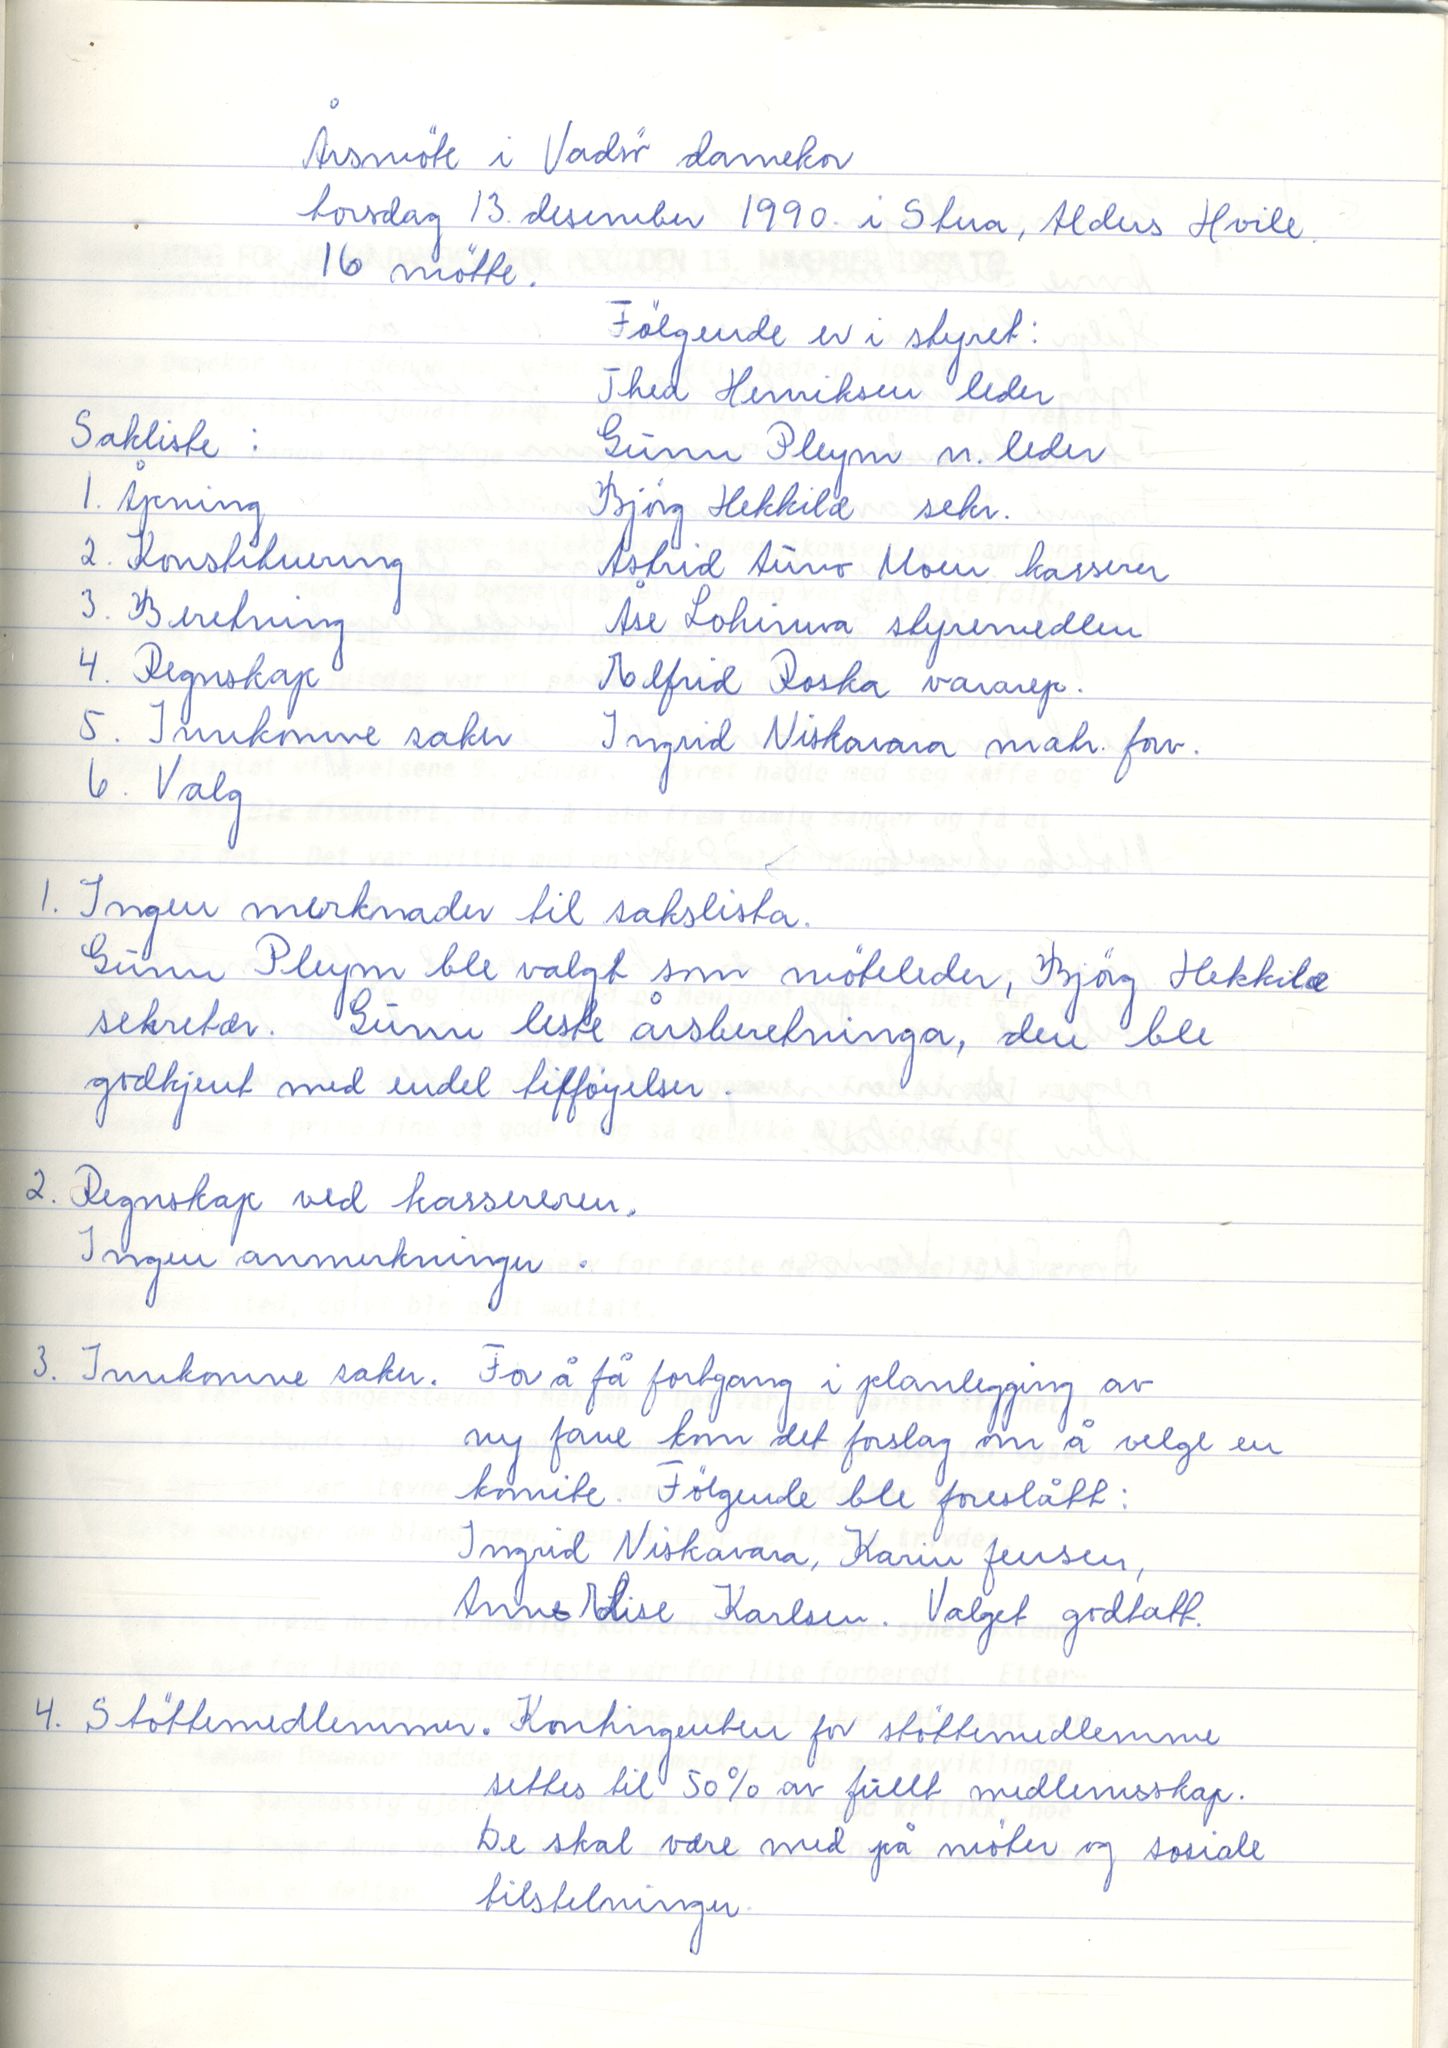 Årsmöte i Vadsö damekor
torsdag 13. desember 1990. i Stua, Alders Hvile.
16 mötte.
Fölgende er i styret:
Thea Henriksen leder
Gunn Pleym n. leder
Bjørg Hekkilä sekr.
Astrid Auno Moen kasserer
Åse Lohiniva styremedlem
Elfrid Roska vararep.
Ingrid Niskavara matr. forv.
Sakliste :
1. Åpning
2. Konstituering
3. Beretning
4. Regnskap
5. Innkomne saker
6. Valg
1. Ingen merknader til sakslista.
Gunn Pleym ble valgt som möteleder, Bjørg Hekkilä
sekretær. Gunn leste årsberetninga, den ble
godkjent med endel tilföyelser.
2. Regnskap ved kassereren.
Ingen anmerkninger.
3. Innkomne saker. For å få fortgang i planlegging av
ny fane kom det forslag om å velge en
komite. Fölgende ble foreslått:
Ingrid Niskavara, Karin Jensen,
Anne Lise Karlsen. Valget godtatt.
4. Stöttemedlemmer. Kontingenten for stöttemedlemme
settes til 50% av fullt medlemsskap.
De skal være med på möter og sosiale
tilstelninger.